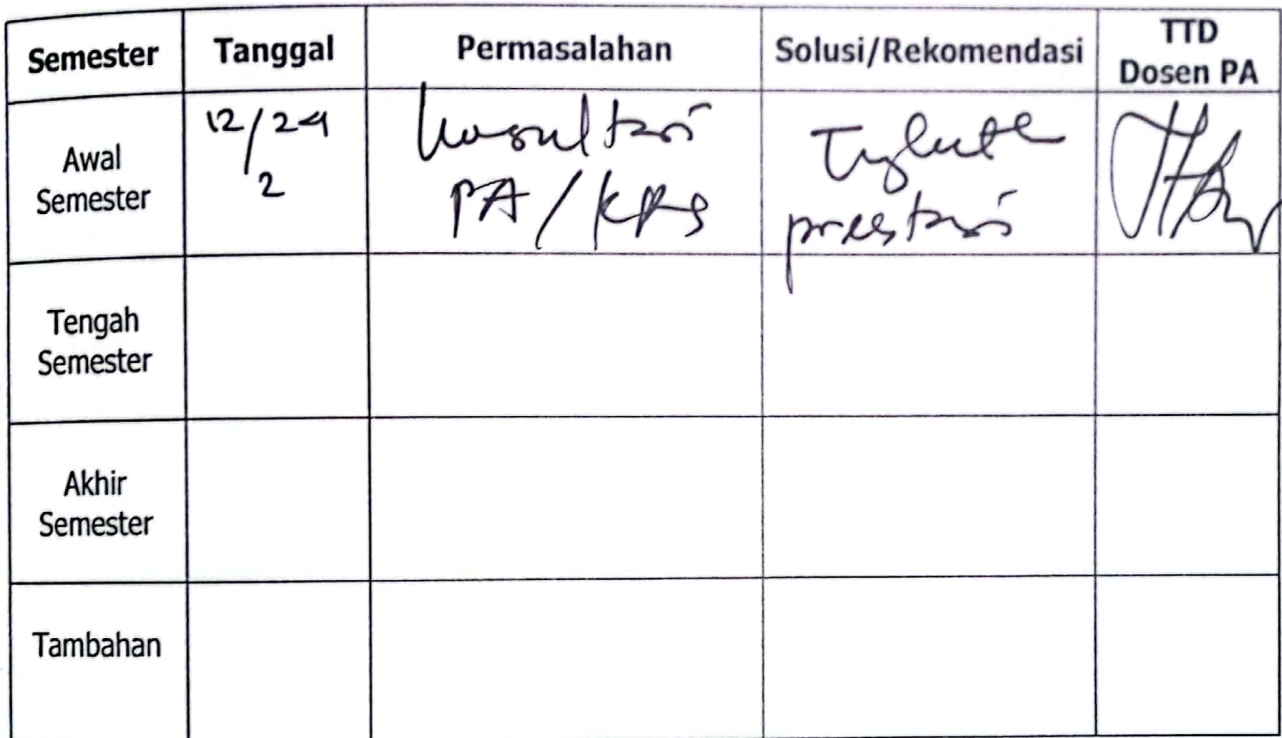 Semester Tanggal Permasalahan Solusi/Rekomendasi TTD
Dosen PA
Awal
Semester
12/24
2
Konsultasi
PA/KRS
prestasi
Tengah
Semester
Akhir
Semester
Tambahan